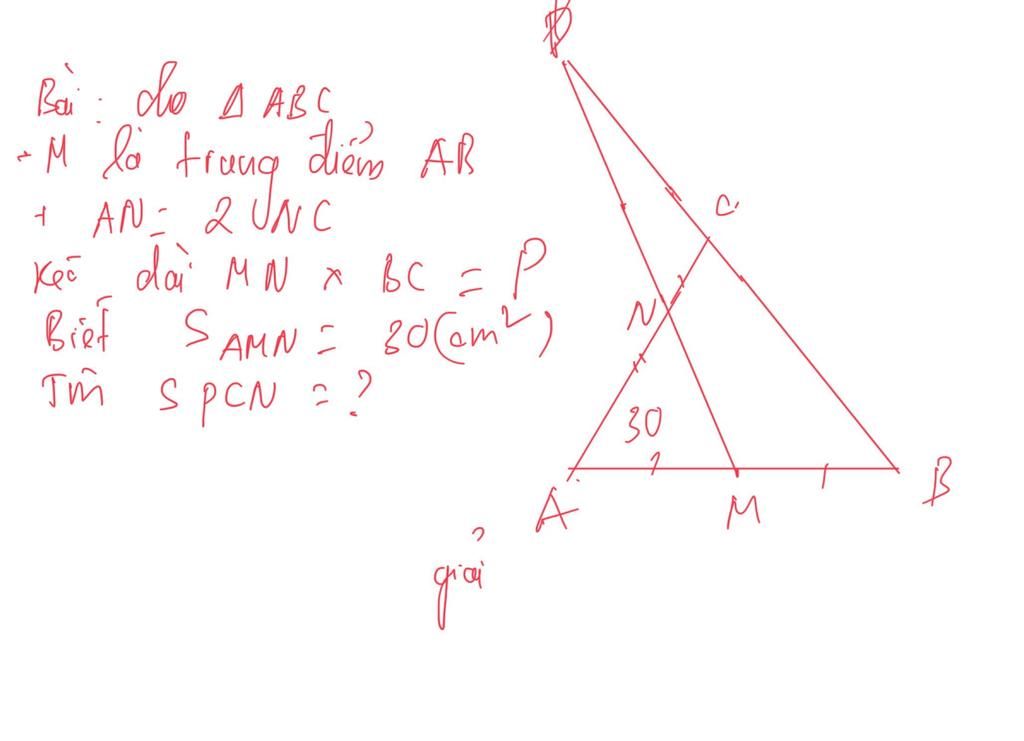 Bài : cho Δ ABC
+ M là trung điểm AB
+ AN = 2 NC
Kéo dài MN x BC = P
Biết S AMN = 30 (cm²)
Tìm S PCN = ?
P
C
N
30
A
M
B
giải